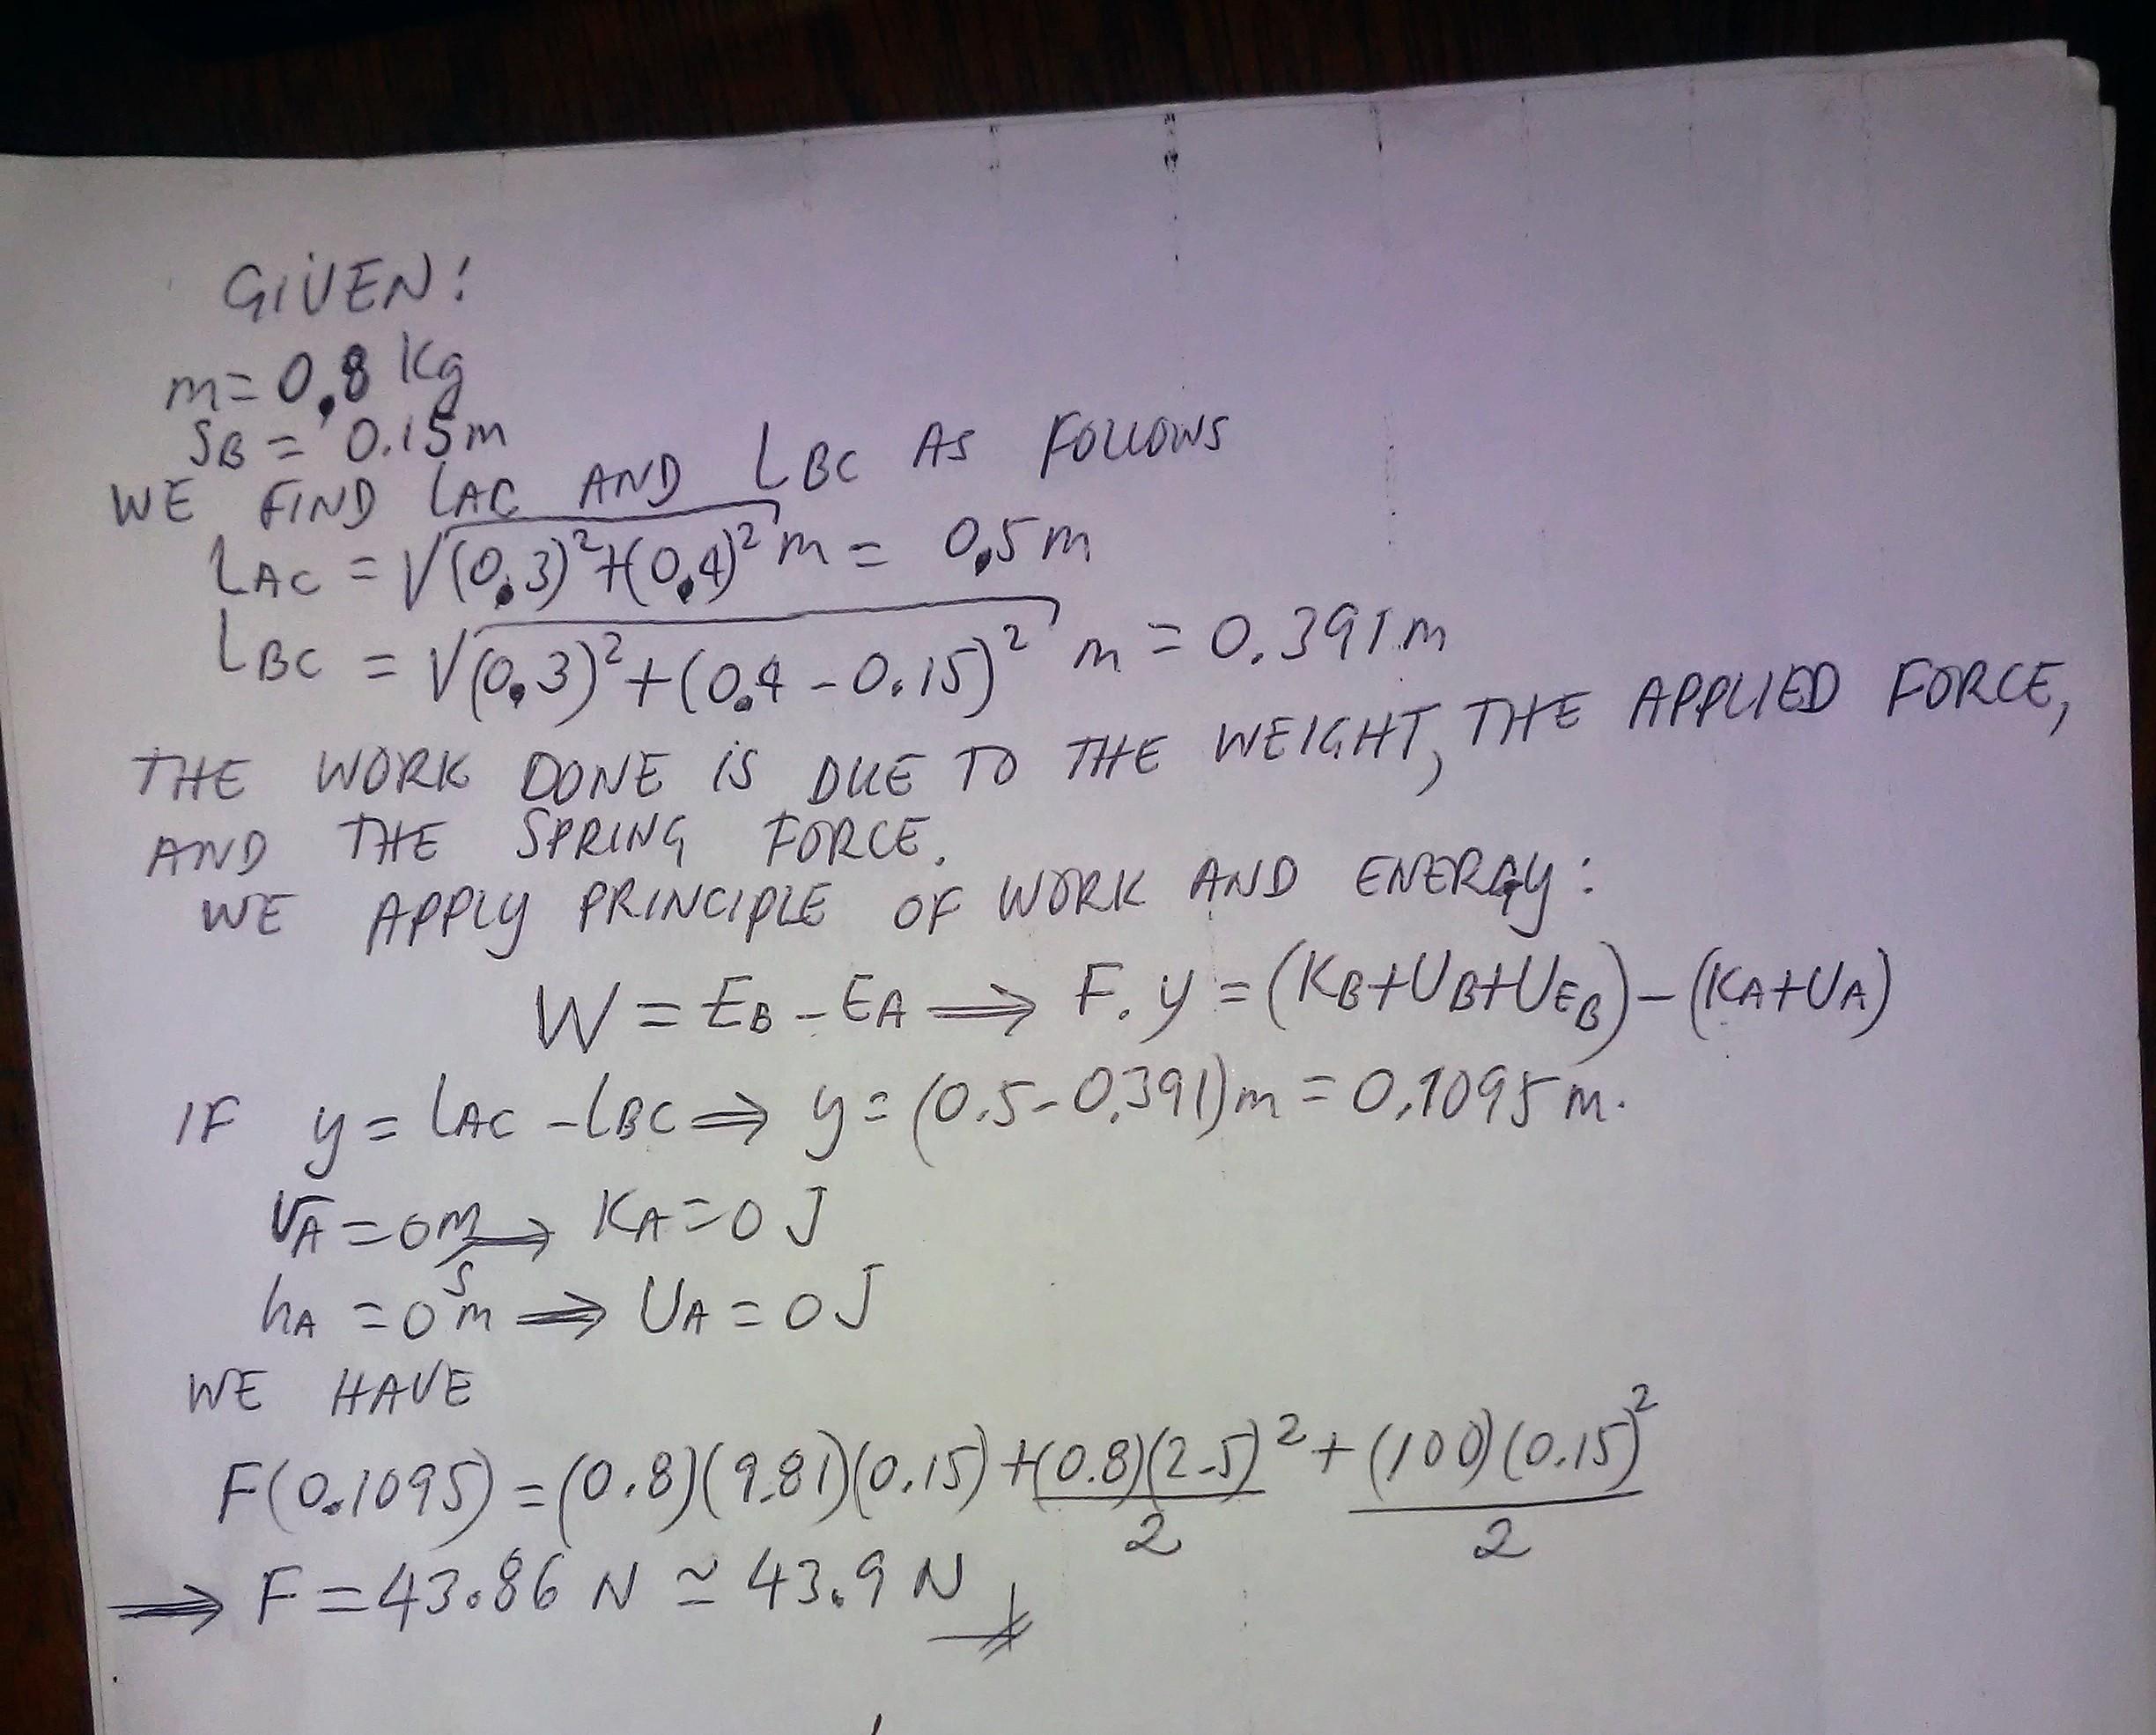 GIVEN:
m = 0.8 Kg
SB = 0.15m
WE FIND LAC AND LBC AS FOLLOWS
LAC = √(0.3)²+(0.4)² m = 0.5m
LBC = √(0.3)²+(0.4-0.15)² m = 0.391m
THE WORK DONE IS DUE TO THE WEIGHT, THE APPLIED FORCE,
AND THE SPRING FORCE.
WE APPLY PRINCIPLE OF WORK AND ENERGY:
W = EB - EA ⟹ F. y = (KB+UB+UEB) - (KA+UA)
IF y = LAC - LBC ⟹ y = (0.5-0.391)m = 0.1095m.
VA = 0 m/s ⟹ KA = 0 J
hA = 0 m ⟹ UA = 0 J
WE HAVE
F(0.1095) = (0.8)(9.81)(0.15) + (0.8)(2.5)²/2 + (100)(0.15)²/2
⟹ F = 43.86 N ≃ 43.9 N